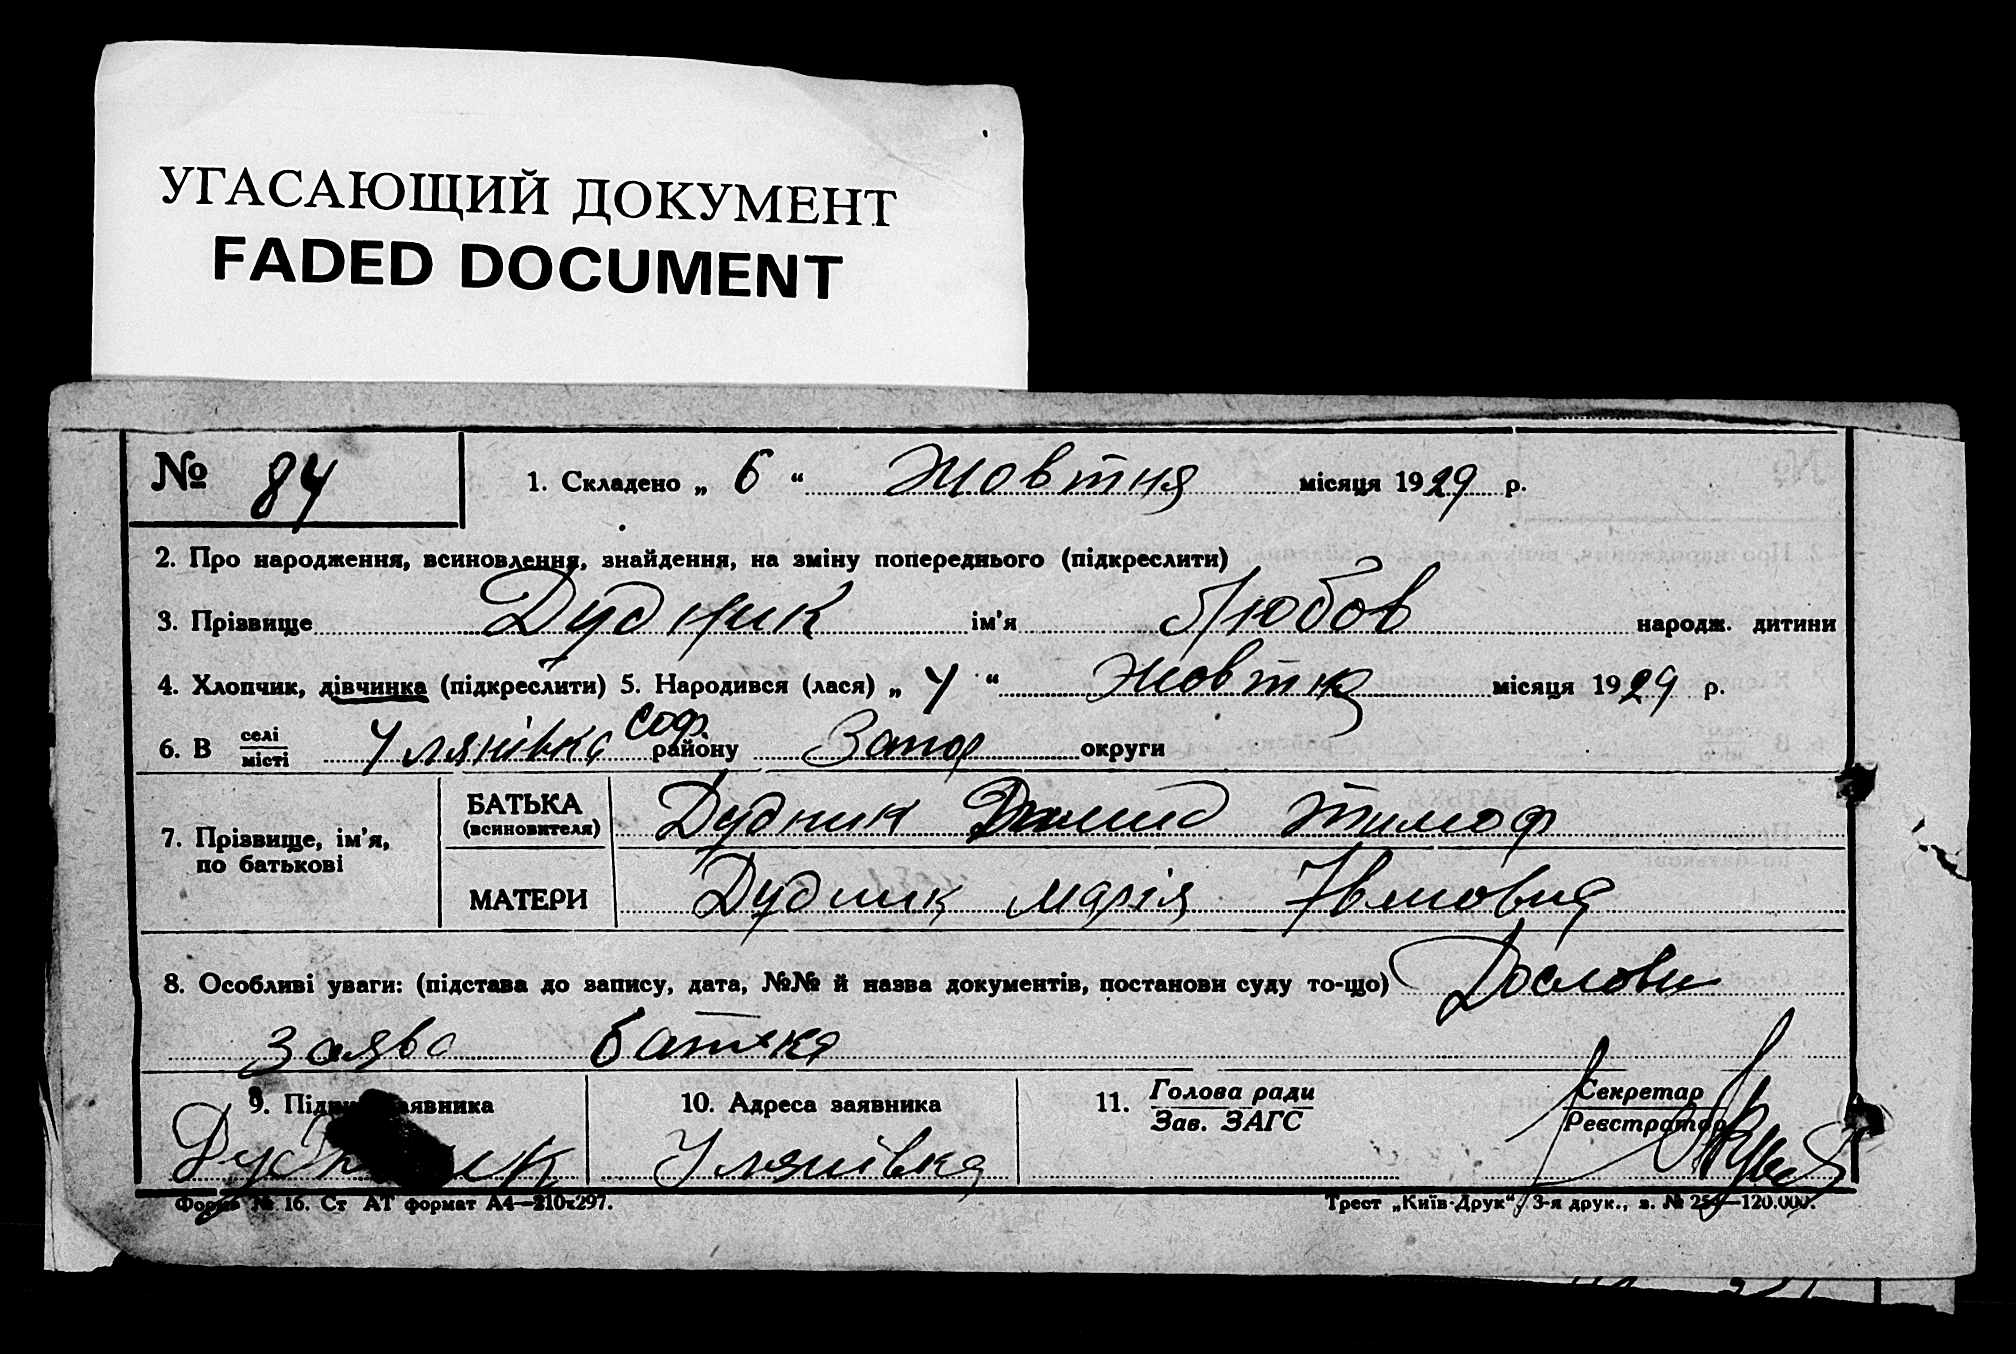 УГАСАЮЩИЙ ДОКУМЕНТ
FADED DOCUMENT
№ 84
1. Складено „ 6 “ Жовтня місяця 1929 р.
2. Про народження, всиновлення, знайдення, на зміну попереднього (підкреслити)
3. Прізвище Дудник ім'я Любов народж. дитини
4. Хлопчик, дівчинка (підкреслити) 5. Народився (лася) „ 4 “ Жовтня місяця 1929 р.
6. В селі/місті Улянівка Соф. району Запор округи
7. Прізвище, ім'я, по батькові
БАТЬКА (всиновителя) Дудник Тимоф
МАТЕРИ Дудник Марія
8. Особливі уваги: (підстава до запису, дата, №№ й назва документів, постанови суду то-що) Дословн
заява батька
9. Підпис заявника 10. Адреса заявника 11. Голова ради/Зав. ЗАГС Секретар/Реєстратор
Дудник Улянівка
Форма № 16. Ст АТ формат А4—210х297. Трест „Київ-Друк“, 3-я друк., з. № 254—120.000.